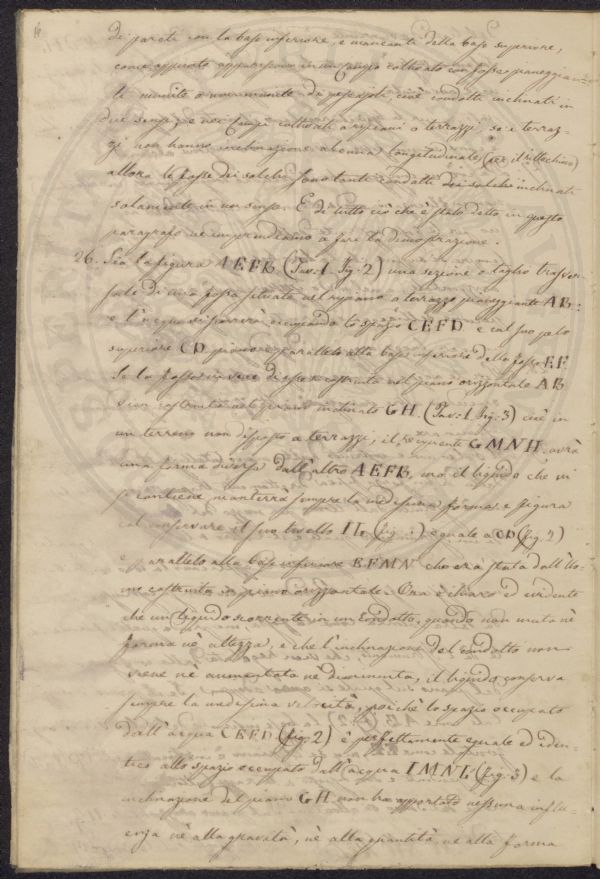 16
di pareti con la base inferiore, e mancanti della base superiore,
come appunto appariscono in un campo coltivato con fosse pianeggian-
ti munite o non munite di acquapoli cioè condotti inclinati in
due sensi, e nei campi coltivati a ripiani o terrazzi, se i terraz-
zi non hanno inclinazione alcuna longitudinale
allora le fosse dei solchi sono tanti condotti dei solchi inclinati
solamente in un senso. E di tutto ciò che è stato detto in questo
paragrafo ne imprendiamo a fare la dimostrazione.
26. Sia la figura AEFB (Tav: 1 Fig. 2) una sezione o taglio trasver-
sale di una fossa situata nel ripiano a terrazzo pianeggiante AB:
e l'acqua vi scorrerà occupando lo spazio CEFD e col suo pelo
superiore CD piano e parallelo alla base inferiore della fossa EF
Se la fossa in vece di essere costruita nel piano orizzontale AB
vien costruita nel piano inclinato GH (Tav: 1 Fig. 3) cioè in
un terreno non disposto a terrazzi, il recipiente GMNH avrà
una forma diversa dall'altro AEFB, ma il liquido che vi
si contiene manterrà sempre la medesima forma e figura
col conservare il suo livello IL (fig. 3) eguale a CD (fig. 2)
e parallelo alla base inferiore EFMN che era stata dall'Uo-
mo costruita in piano orizzontale. Ora è chiaro ed evidente
che un liquido scorrente in un condotto, quando non muta nè
forma nè altezza, e che l'inclinazione del condotto non
viene nè aumentata nè diminuita, il liquido conserva
sempre la medesima velocità, poichè lo spazio occupato
dall'acqua CEFD (fig. 2) è perfettamente eguale ed iden-
tico allo spazio occupato dall'acqua IMNL (fig. 3) e la
inclinazione del piano GH non ha apportato nessuna influ-
enza nè alla gravità, nè alla quantità, nè alla forma